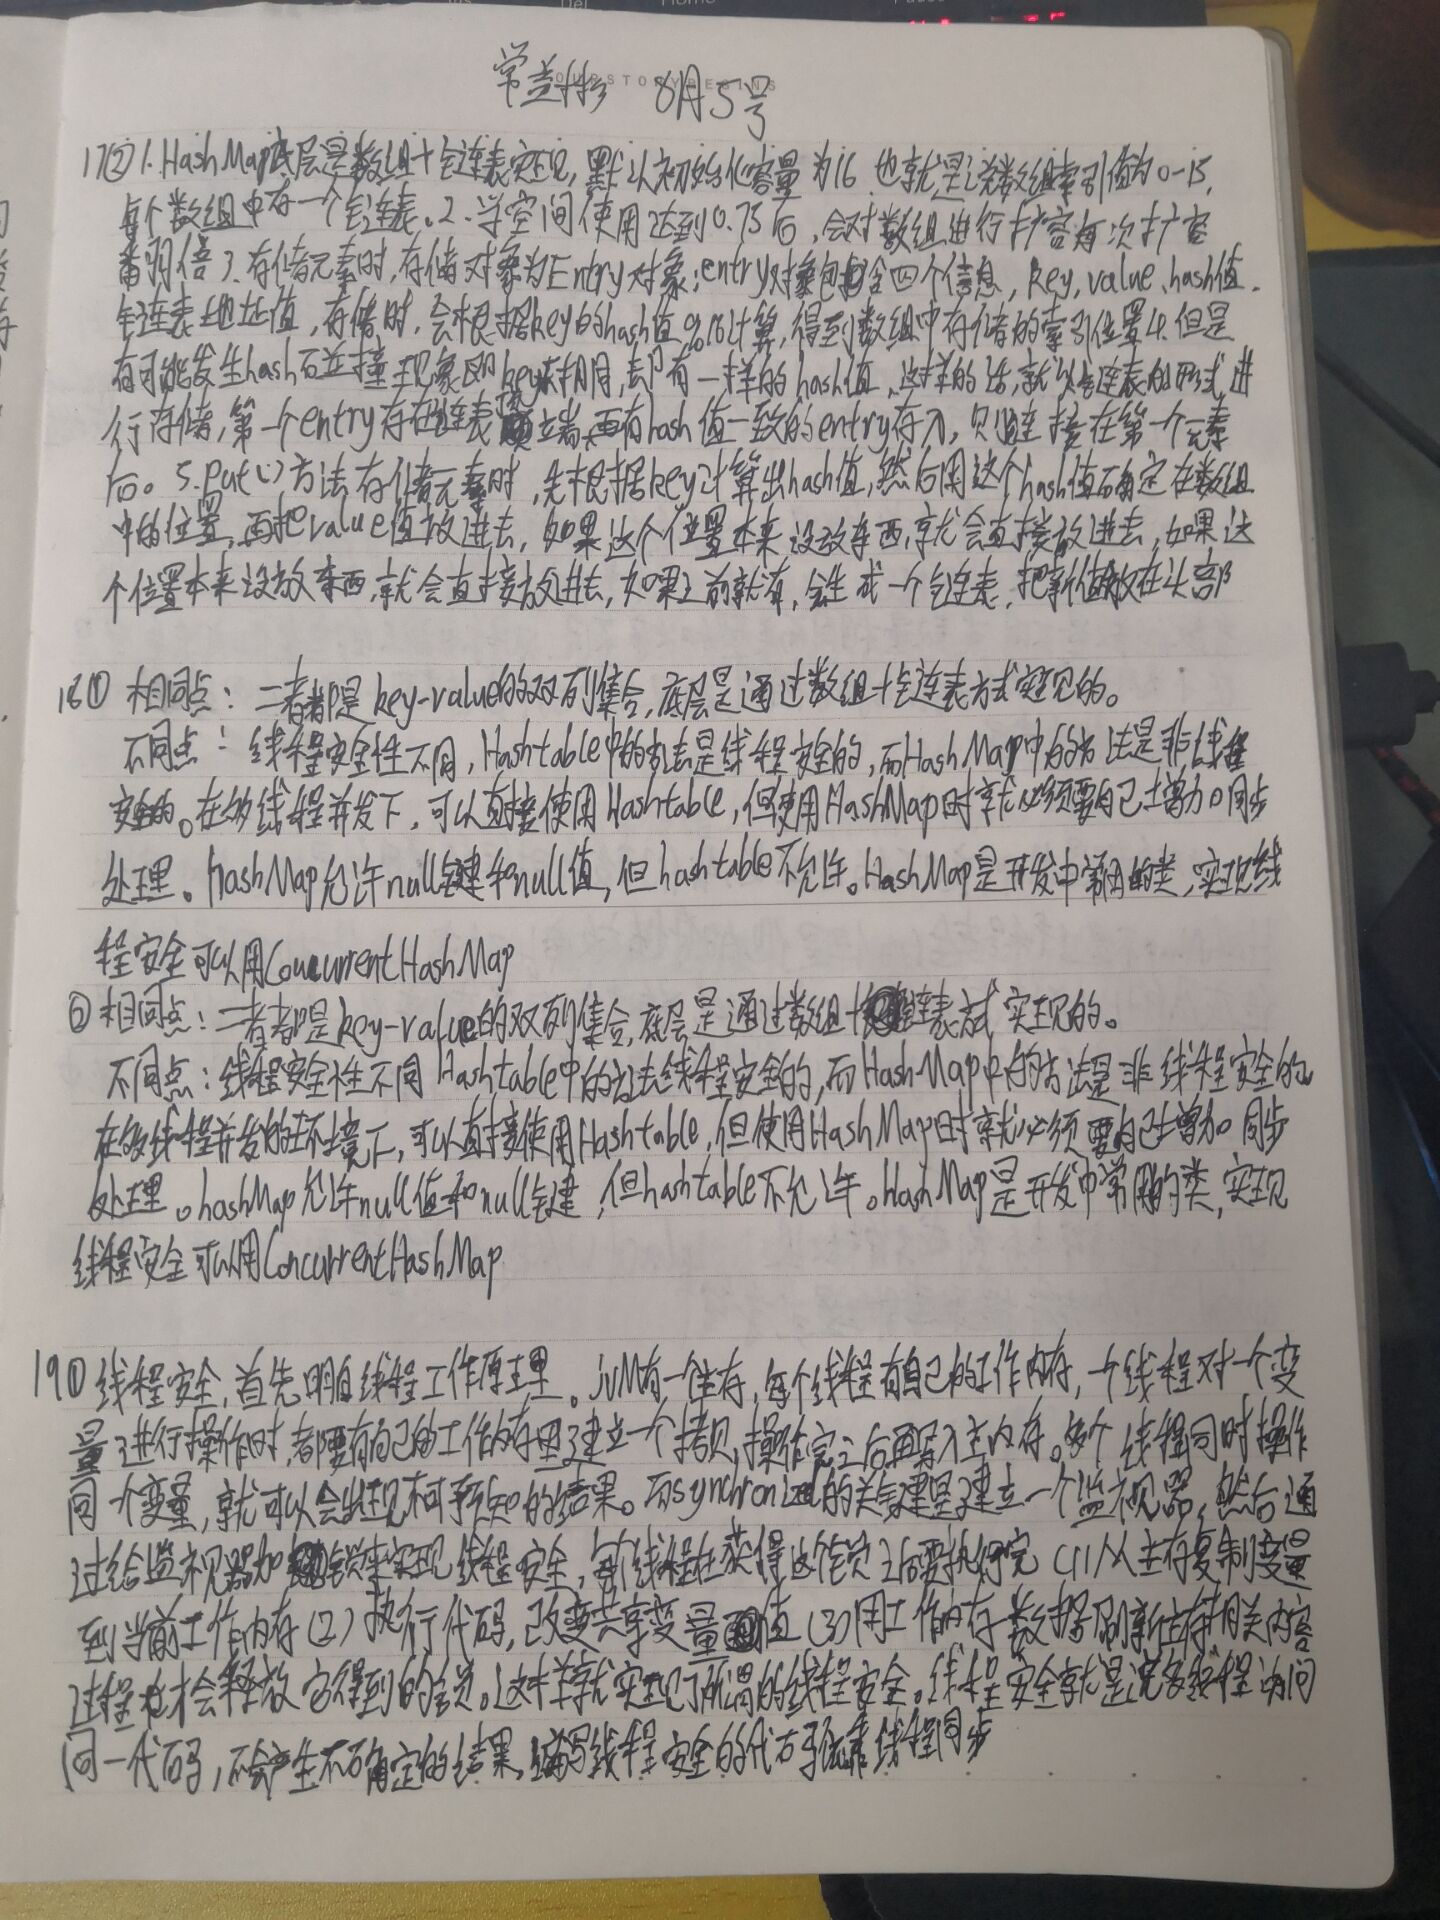 Del Home
常芸彬 8月5号
OURSTORYBEGINS
17② 1.HashMap底层是数组+链表实现,默认初始化容量为16.也就是该数组索引值为0-15,
每个数组中存一个链表。2.当空间使用达到0.75后,会对数组进行扩容每次扩容
番两倍 3.存储元素时,存储对象为Entry对象;entry对象包含四个信息,key,value、hash值.
链表地址值,存储时,会根据key的hash值%16计算,得到数组中存储的索引位置4.但是
有可能发生hash碰撞现象即key不相同,却有一样的hash值、这样的话,就以链表的形式进
行存储,第一个entry存在链表顶端,再有hash值一致的entry存入,只连接在第一个元素
后。5.put()方法存储元素时,先根据key计算出hash值,然后用这个hash值确定在数组
中的位置,再把value值放进去,如果这个位置本来没放东西,就会直接放进去,如果这
个位置本来没放东西,就会直接放进去,如果之前就有,会生成一个链表,把新值放在头部
18① 相同点:二者都是key-value的双列集合,底层是通过数组+链表方式实现的。
不同点:线程安全性不同,Hashtable中的方法是线程安全的,而HashMap中的方法是非线程
安全的。在多线程并发下,可以直接使用Hashtable,但使用HashMap时就必须要自己增加同步
处理。HashMap允许null键和null值,但hashtable不允许。HashMap是开发中常用的类,实现线
程安全可以用ConcurrentHashMap
② 相同点:二者都是key-value的双列集合,底层是通过数组+链表方式实现的。
不同点:线程安全性不同Hashtable中的方法线程安全的,而HashMap中的方法是非线程安全的
在多线程并发的环境下,可以直接使用Hashtable,但使用HashMap时就必须要自己增加同步
处理。hashMap允许null值和null键,但hashtable不允许。HashMap是开发中常用的类,实现
线程安全可以用ConcurrentHashMap
19① 线程安全,首先明白线程工作原理。jvM有一个主存,每个线程有自己的工作内存,一个线程对一个变
量进行操作时,都要在自己的工作内存里建立一个拷贝,操作完之后再写入主内存。多个线程同时操作
同一个变量,就可以会出现不可预知的结果。而synchronized的关键是建立一个监视器,然后通
过给监视器加锁来实现线程安全,每个线程在获得这个锁之后要执行完(1)从主存复制变量
到当前工作内存(2)执行代码,改变共享变量值(3)用工作内存数据刷新主存相关内容
过程才会释放它得到的锁。这样就实现了所谓的线程安全。线程安全就是说多线程访问
同一代码,不会产生不确定的结果,编写线程安全的代码依靠线程同步